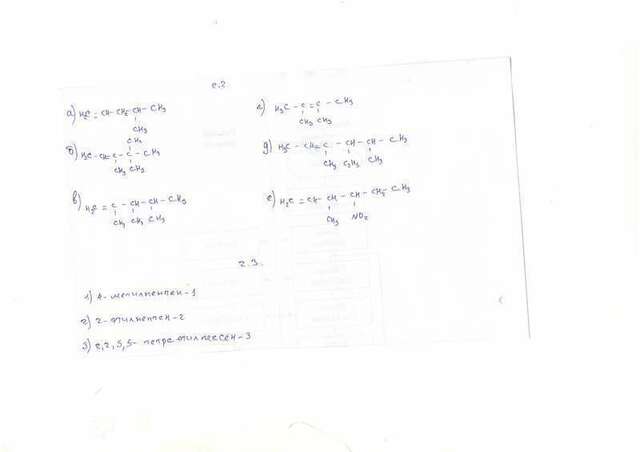 2.2
а) H₂C = CH - CH₂ - CH - CH₃
CH₃
CH₃
б) H₃C - CH = C - C - CH₃
CH₃ CH₃
в) H₂C = C - CH - CH - CH₃
CH₃ CH₃ CH₃
г) H₃C - C = C - CH₃
CH₃ CH₃
д) H₃C - CH = C - CH - CH - CH₃
CH₃ C₂H₅ CH₃
е) H₂C = CH - CH - CH - CH₂ - CH₃
CH₃ NO₂
2.3.
1) 4-метилпентен-1
2) 2-этилпентен-2
3) 2,2,5,5-тетраэтилгексен-3